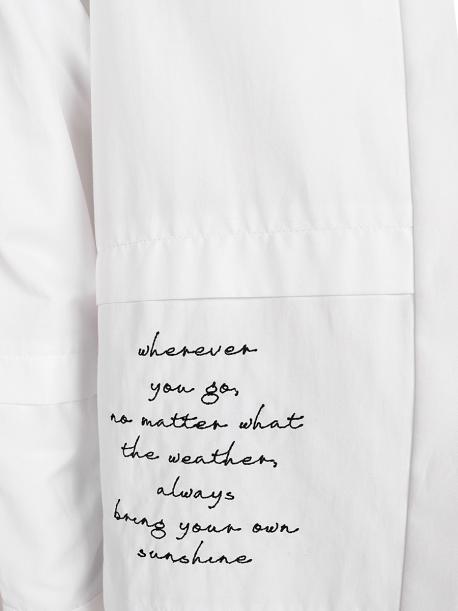 wherever
you go,
no matter what
the weather,
always
bring your own
sunshine